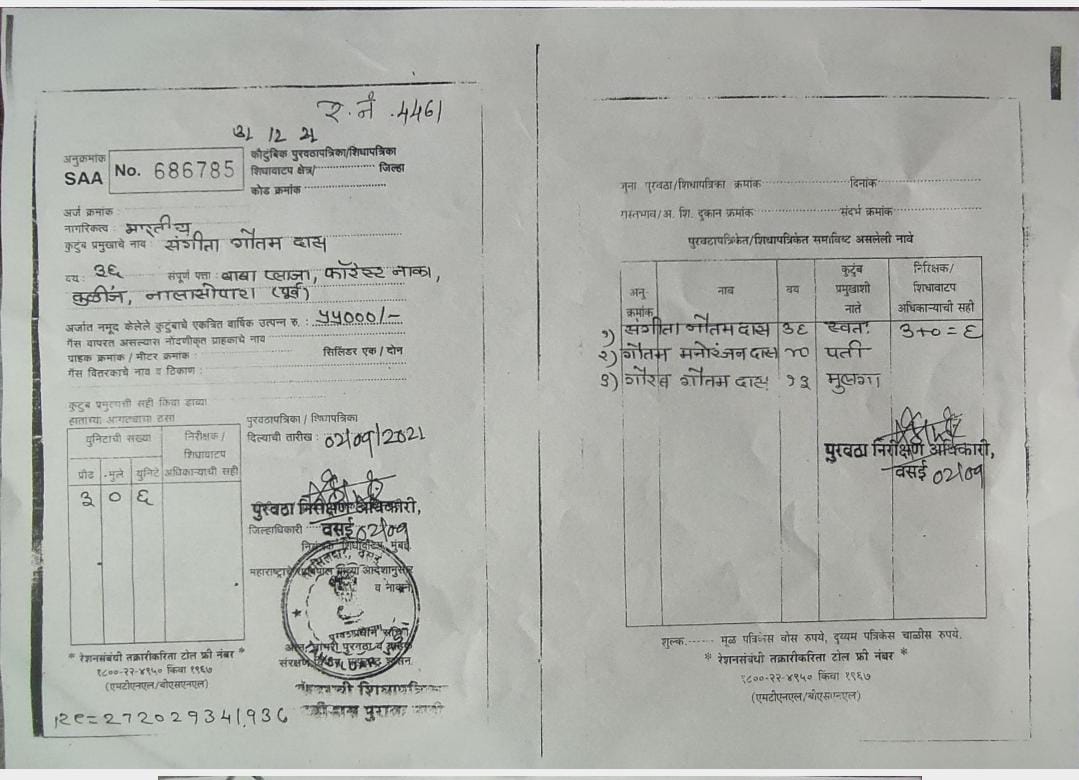 र. नं. 4461
31 12 21
अनुक्रमांक
SAA No. 686785
कौटुंबिक पुरवठापत्रिका/शिधापत्रिका
शिधावाटप क्षेत्र/ जिल्हा
कोड क्रमांक
अर्ज क्रमांक :
नागरिकत्व : भारतीय
कुटुंब प्रमुखाचे नाव : संगीता गौतम दास
वय : ३६ संपूर्ण पत्ता : बाबा प्लाजा, फॉरेस्ट नाका,
नालासोपारा (पूर्व)
अर्जात नमूद केलेले कुटुंबाचे एकत्रित वार्षिक उत्पन्न रु. : ५५०००/-
गॅस वापरत असल्यास नोंदणीकृत ग्राहकाचे नाव
ग्राहक क्रमांक / मीटर क्रमांक : सिलिंडर एक / दोन
गॅस वितरकाचे नाव व ठिकाण :
कुटुंब प्रमुखाची सही किंवा डाव्या
हाताच्या अंगठ्याचा ठसा
युनिटाची संख्या निरीक्षक / शिधावाटप अधिकाऱ्याची सही
प्रौढ मुले युनिट
३ ० ६
पुरवठापत्रिका / शिधापत्रिका
दिल्याची तारीख : 02/09/2021
पुरवठा निरीक्षण अधिकारी,
जिल्हाधिकारी वसई 02/09
शिधावाटप, मुंबई
आदेशानुसार
व नावाने
* रेशनसंबंधी तक्रारीकरिता टोल फ्री नंबर *
१८००-२२-४९५० किंवा १९६७
(एमटीएनएल/बीएसएनएल)
शिधापत्रिका
RC=272029341936
जुना पुरवठा/शिधापत्रिका क्रमांक दिनांक
गस्तभाव/अ. शि. दुकान क्रमांक संदर्भ क्रमांक
पुरवठापत्रिकेत/शिधापत्रिकेत समाविष्ट असलेली नावे
अनु क्रमांक नाव वय कुटुंब प्रमुखाशी नाते निरिक्षक/ शिधावाटप अधिकाऱ्याची सही
१) संगीता गौतम दास ३६ स्वतः 3+0 = ६
२) गौतम मनोरंजन दास ४० पती
३) गौरव गौतम दास १३ मुलगा
पुरवठा निरीक्षण अधिकारी,
वसई 02/09
शुल्क....... मूळ पत्रिकेस वीस रुपये, दुय्यम पत्रिकेस चाळीस रुपये.
* रेशनसंबंधी तक्रारीकरिता टोल फ्री नंबर *
१८००-२२-४९५० किंवा १९६७
(एमटीएनएल/बीएसएनएल)